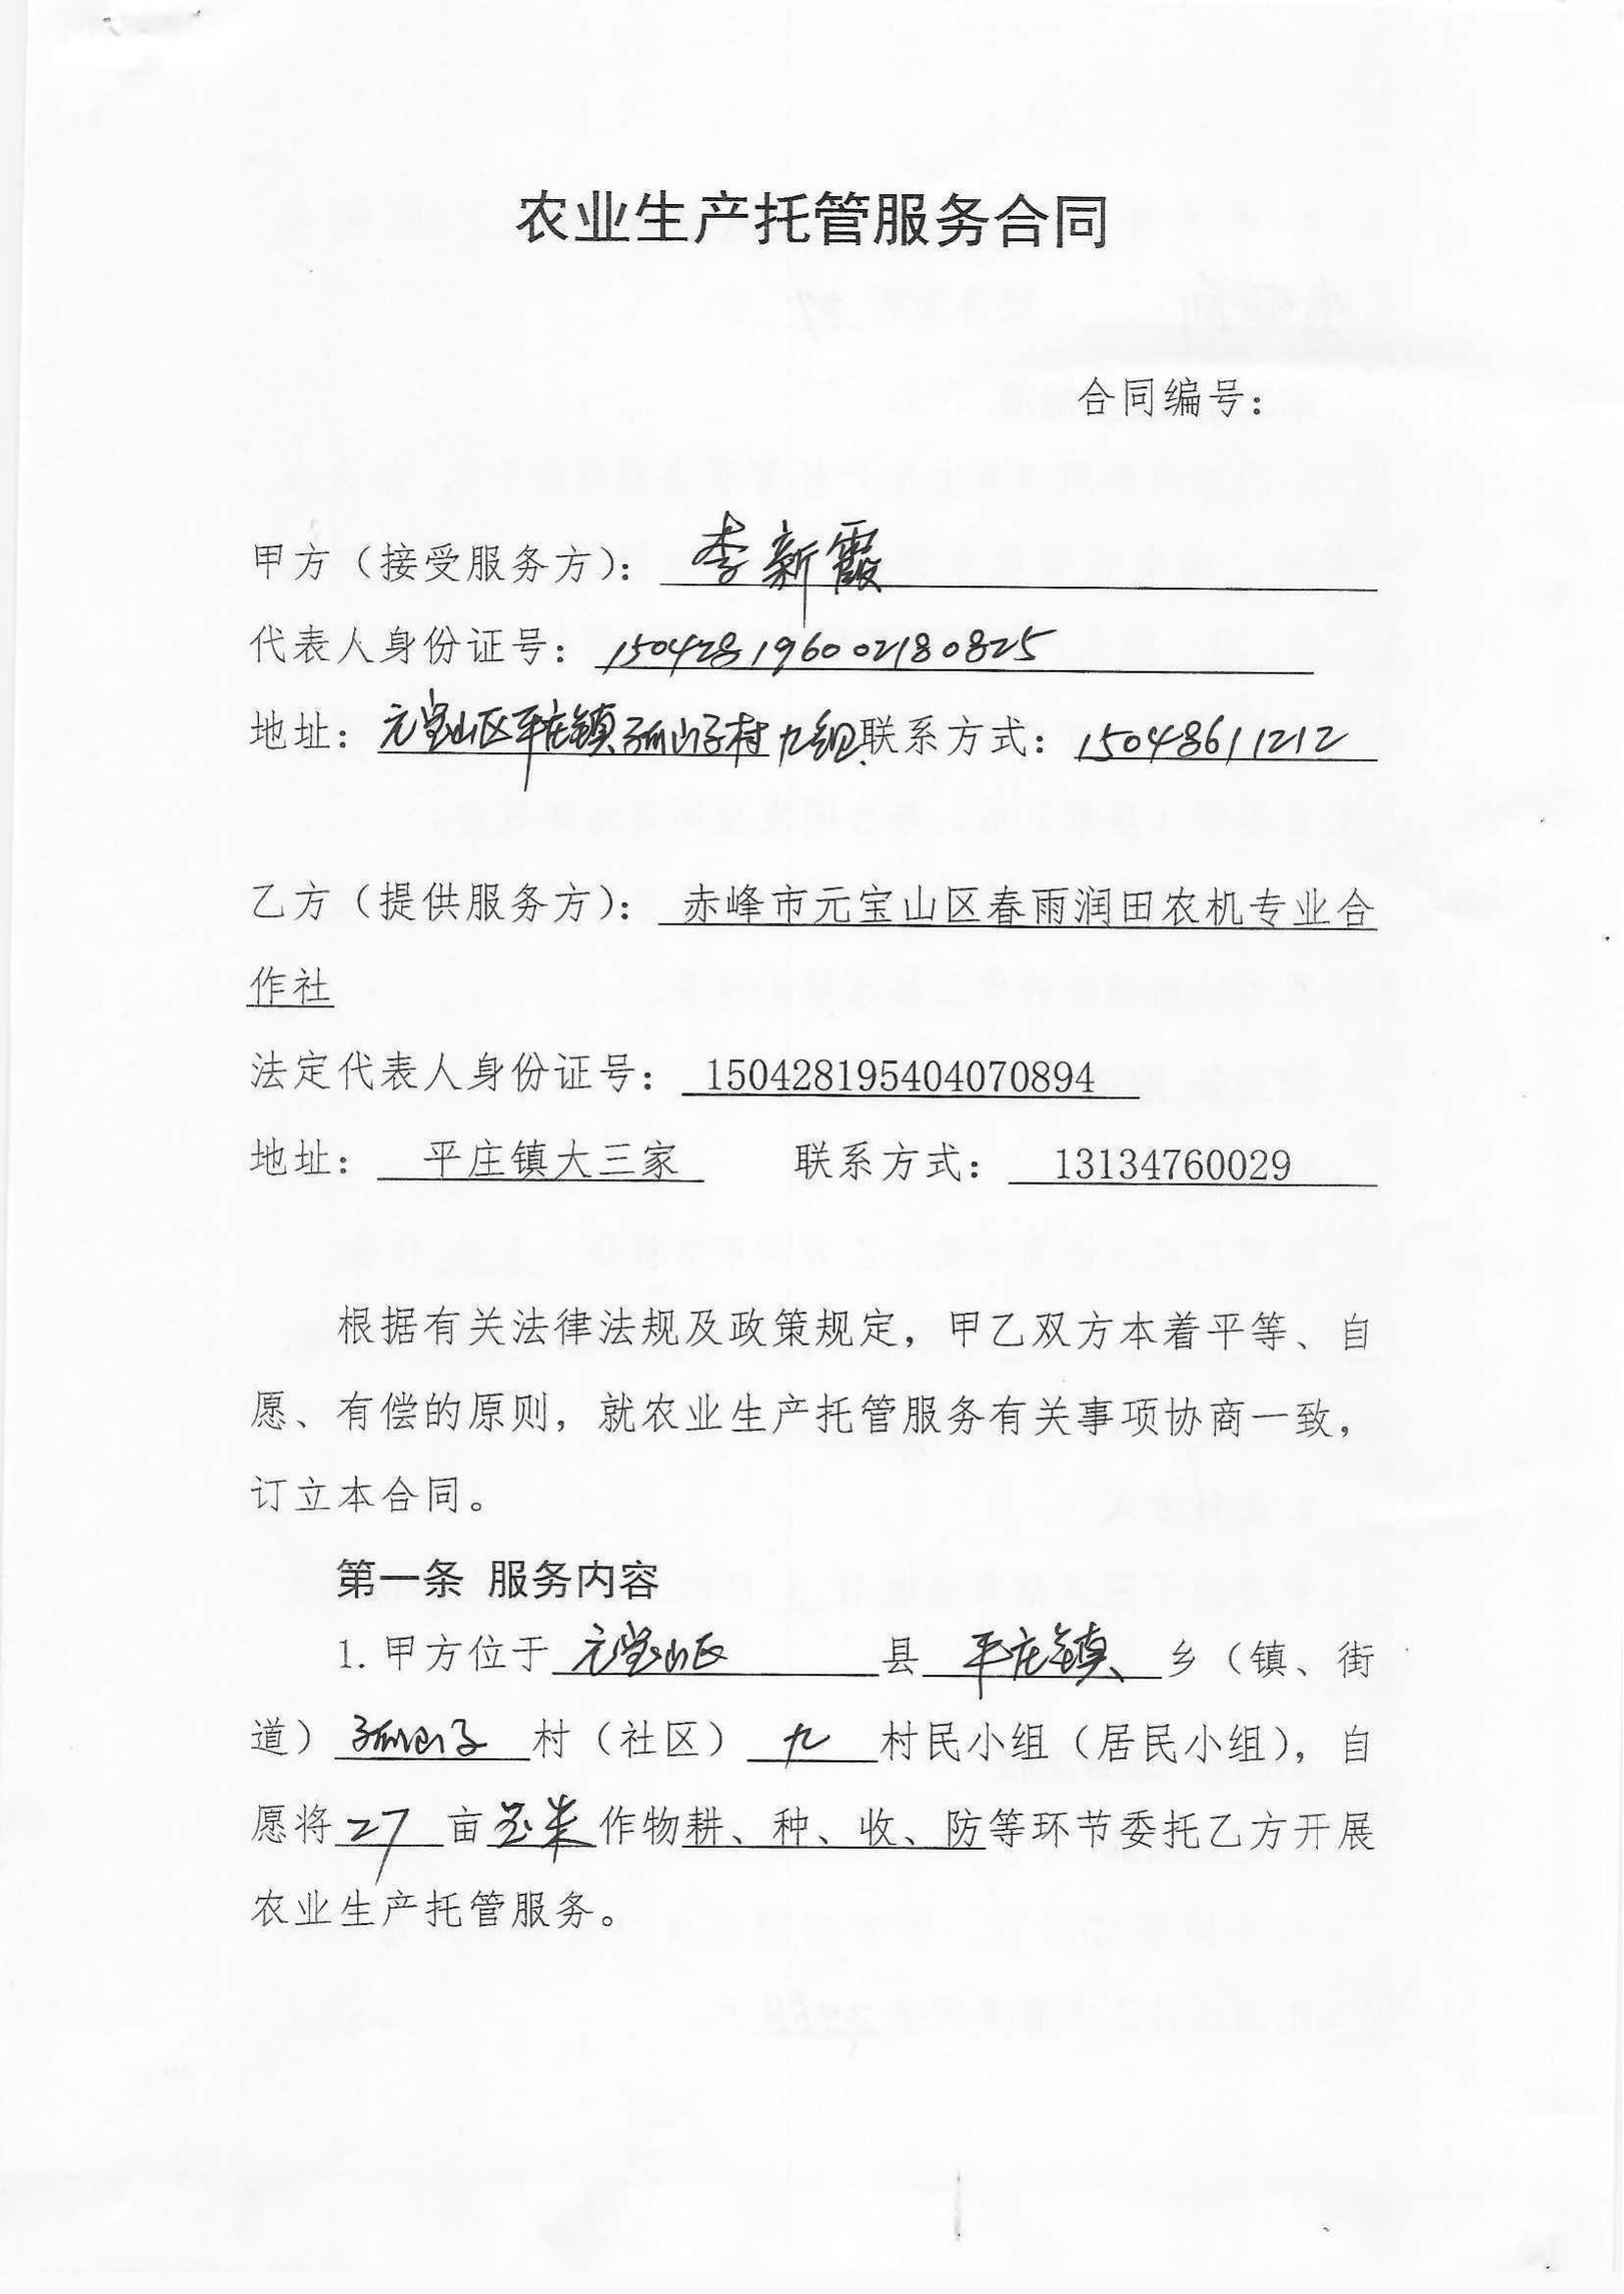 农业生产托管服务合同
合同编号：
甲方（接受服务方）： 李新霞
代表人身份证号： 150428196002180825
地址： 元宝山区平庄镇孤山子村九组 联系方式： 15048611212
乙方（提供服务方）： 赤峰市元宝山区春雨润田农机专业合
作社
法定代表人身份证号： 150428195404070894
地址： 平庄镇大三家 联系方式： 13134760029
根据有关法律法规及政策规定，甲乙双方本着平等、自
愿、有偿的原则，就农业生产托管服务有关事项协商一致，
订立本合同。
第一条 服务内容
1. 甲方位于 元宝山区 县 平庄镇 乡（镇、街
道） 孤山子 村（社区） 九 村民小组（居民小组），自
愿将 27 亩 玉米 作物耕、种、收、防等环节委托乙方开展
农业生产托管服务。